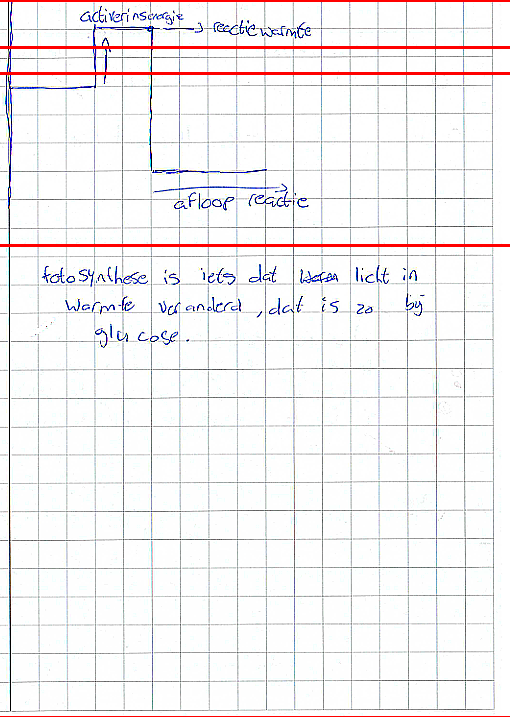 activeringsenergie
reactiewarmte
afloop reactie
fotosynthese is iets dat licht in
warmte veranderd, dat is zo bij
glucose.